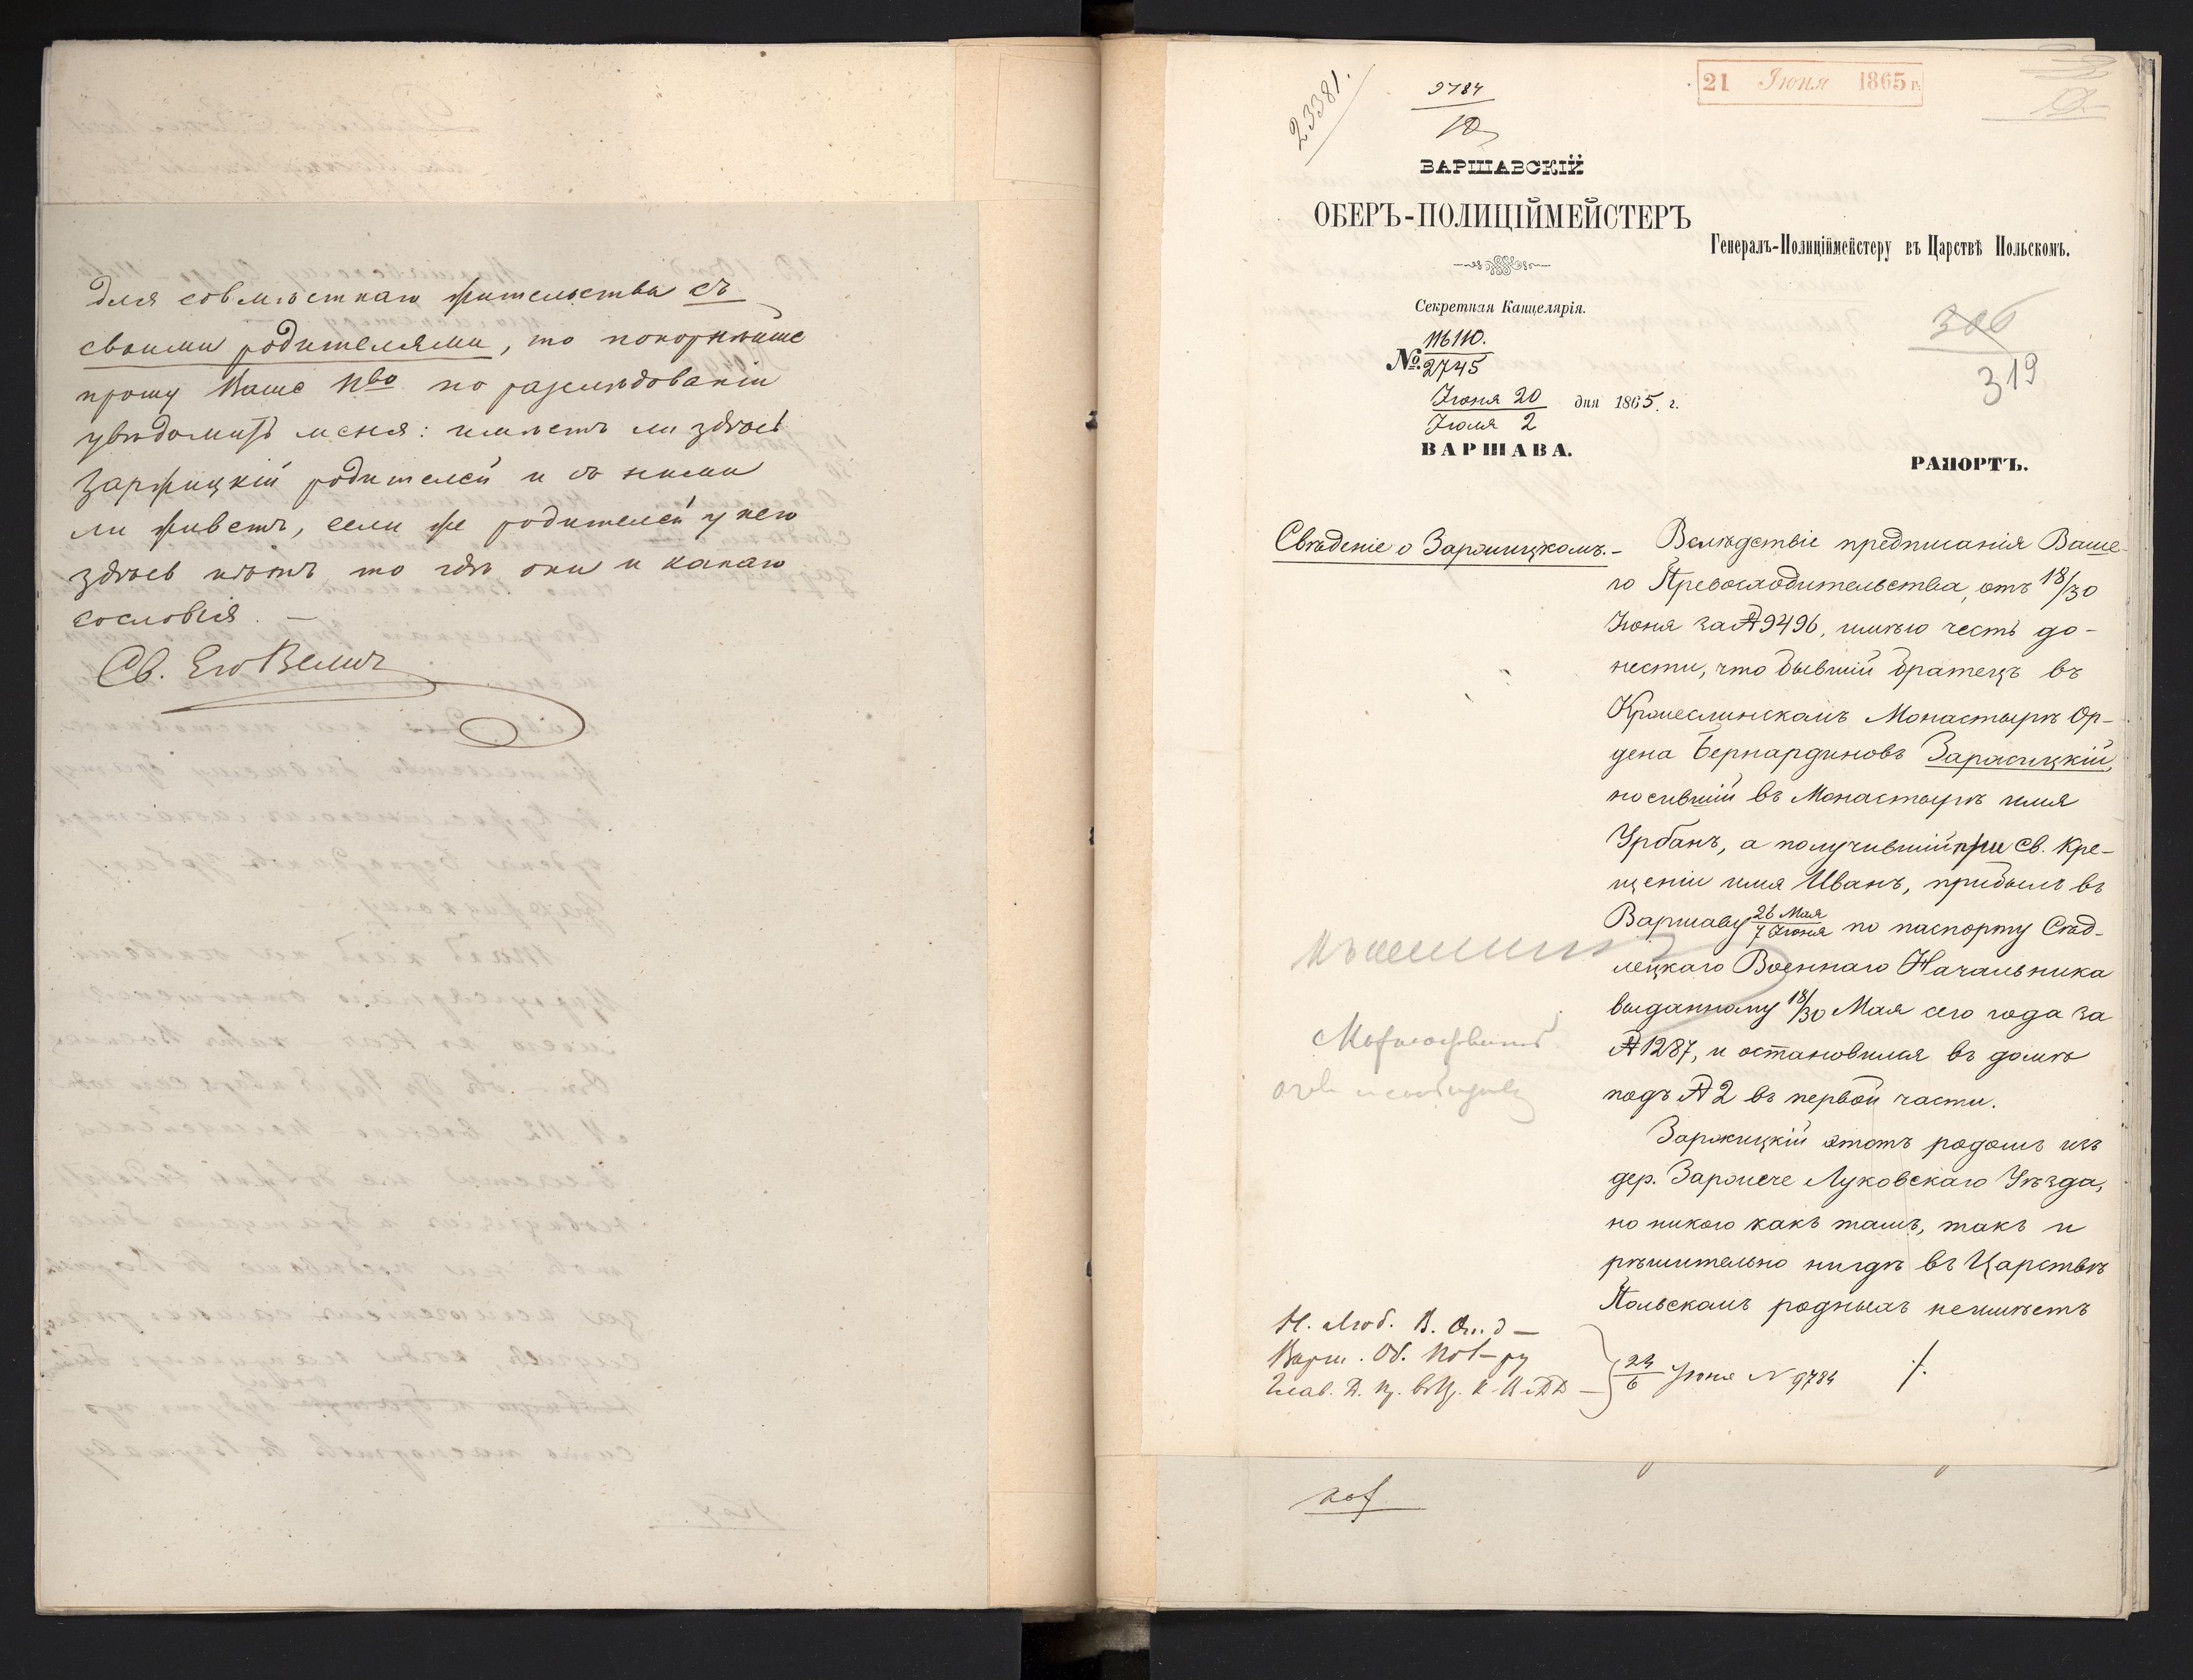 для совмѣстнаго жительства съ
своими родителями, то покорнѣйше
прошу Ваше Пво по разслѣдованіи
увѣдомить меня: имѣетъ ли здѣсь
Заржицкій родителей и съ ними
ли живетъ, если же родителей у него
здѣсь нѣтъ то гдѣ они и какого
сословія. —
Св. Его Велич
23381.
9784
21 Іюня 1865 г.
ВАРШАВСКІЙ
ОБЕРЪ-ПОЛИЦІЙМЕЙСТЕРЪ
Генералъ-Полиціймейстеру въ Царствѣ Польскомъ.
Секретная Канцелярія.
№ 116110.
2745
306
319
Іюня 20
Іюля 2
дня 1865. г.
ВАРШАВА.
РАПОРТЪ.
Свѣденіе о Заржицкомъ.–
Вслѣдствіе предписанія Ваше-
го Превосходительства, отъ 18/30
Іюня за № 9496, имѣю честь до-
нести, что бывшій братецъ въ
Кржеслинскомъ Монастырѣ Ор-
дена Бернардиновъ Заржицкій,
носившій въ Монастырѣ имя
Урбанъ, а получившій при Св. Кре-
щеніи имя Иванъ, прибылъ въ
Варшаву 26 Мая/7 Іюня по паспорту Сѣд-
лецкаго Военнаго Начальника
выданному 18/30 Мая сего года за
№ 1287, и остановился въ домѣ
подъ № 2 въ первой части.
Заржицкій этотъ родомъ изъ
дер. Заржече Луковскаго Уѣзда,
но никого какъ тамъ, такъ и
рѣшительно нигдѣ въ Царствѣ
Польскомъ родныхъ неимѣетъ
Н. Люб. В. Отд —
Варш. Об. Пол-ру
24/6 Іюня N 9784
./.